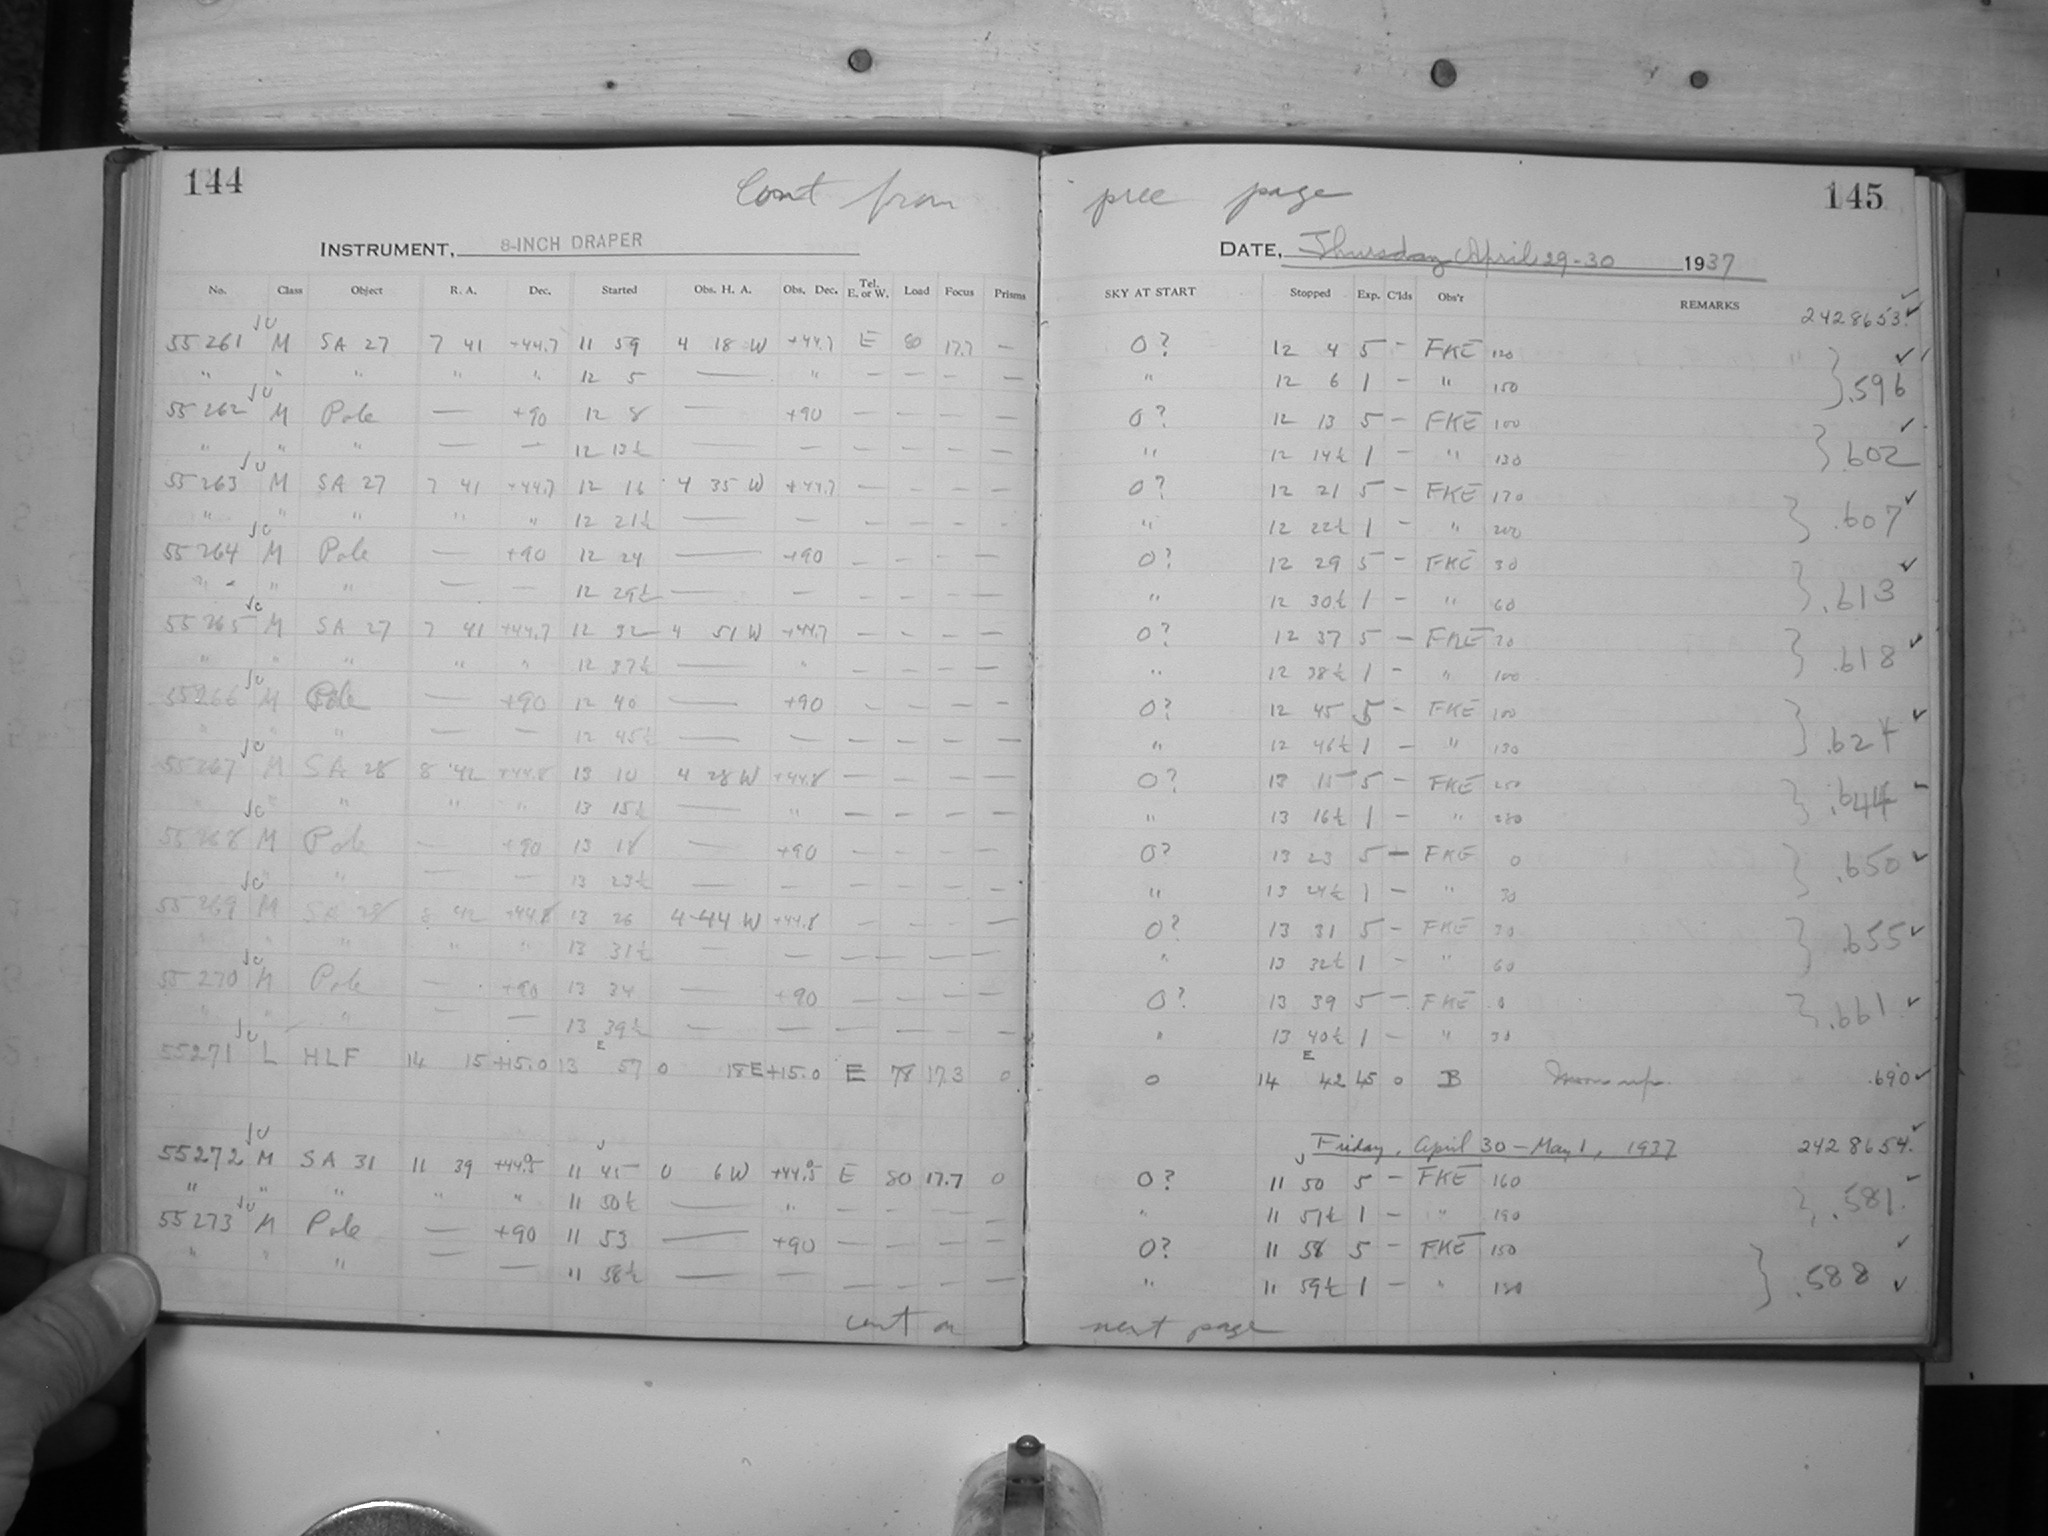 144 Cont from prec page 145
INSTRUMENT, 8-INCH DRAPER DATE, Thursday April 29-30 1937
No. Class Object R. A. Dec. Started Obs. H. A. Obs. Dec. Tel. E. or W. Load Focus Prisms SKY AT START Stopped Exp. C'lds Obs'r REMARKS
2428653.
55261 M SA 27 7 41 +44.7 11 59 4 18 W +44.7 E 80 17.7 — 0? 12 4 5 – FKE 120
" " " " " 12 5 — " — — — — " 12 6 1 – " 150 .596
55262 M Pole — +90 12 8 — +90 — — — — 0? 12 13 5 – FKE 100
" " " — — 12 13½ — — — — — — " 12 14½ 1 – " 130 .602
55263 M SA 27 7 41 +44.7 12 16 4 35 W +44.7 — — — — 0? 12 21 5 – FKE 170
" " " " " 12 21½ — — — — — — " 12 22½ 1 – " 200 .607
55264 M Pole — +90 12 24 — +90 — — — — 0? 12 29 5 – FKE 30
" " " — — 12 29½ — — — — — — " 12 30½ 1 – " 60 .613
55265 M SA 27 7 41 +44.7 12 32 4 51 W +44.7 — — — — 0? 12 37 5 – FKE 70
" " " " " 12 37½ — " — — — — " 12 38½ 1 – " 100 .618
55266 M Pole — +90 12 40 — +90 — — — — 0? 12 45 5 – FKE 100
" " " — — 12 45½ — — — — — — " 12 46½ 1 – " 130 .624
55267 M SA 28 8 42 +44.8 13 10 4 28 W +44.8 — — — — 0? 13 15 5 – FKE 250
" " " " " 13 15½ — " — — — — " 13 16½ 1 – " 280 .644
55268 M Pole — +90 13 18 — +90 — — — — 0? 13 23 5 – FKE 0
" " " — — 13 23½ — — — — — — " 13 24½ 1 – " 30 .650
55269 M SA 28 8 42 +44.8 13 26 4 44 W +44.8 — — — — 0? 13 31 5 – FKE 30
" " " " " 13 31½ — — — — — — " 13 32½ 1 – " 60 .655
55270 M Pole — +90 13 34 — +90 — — — — 0? 13 39 5 – FKE 0
" " " — — 13 39½ — — — — — — " 13 40½ 1 – " 30 .661
55271 L HLF 14 15 +15.0 13 57 E 0 18 E +15.0 E 78 17.3 0 0 14 42 E 45 0 B Moon up. .690
Friday, April 30 – May 1, 1937 2428654.
55272 M SA 31 11 39 11 45 0 6 W E 80 17.7 0 0? 11 50 5 – FKE 160
" " " " " 11 50½ — " — — — — " 11 51½ 1 – " 190 .581
55273 M Pole — +90 11 53 — +90 — — — — 0? 11 58 5 – FKE 150
" " " — — 11 58½ — — — — — — " 11 59½ 1 – " .588
cont on next page